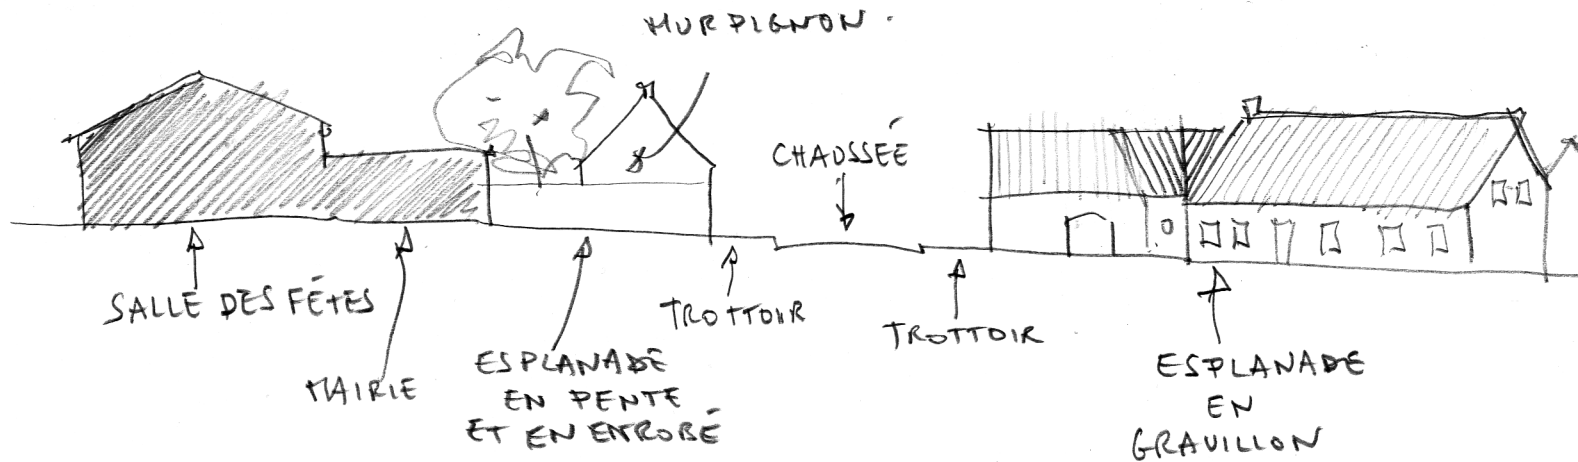 MUR PIGNON.
CHAUSSÉE
SALLE DES FÊTES
MAIRIE
ESPLANADE
EN PENTE
ET EN ENROBÉ
TROTTOIR
TROTTOIR
ESPLANADE
EN
GRAVILLON